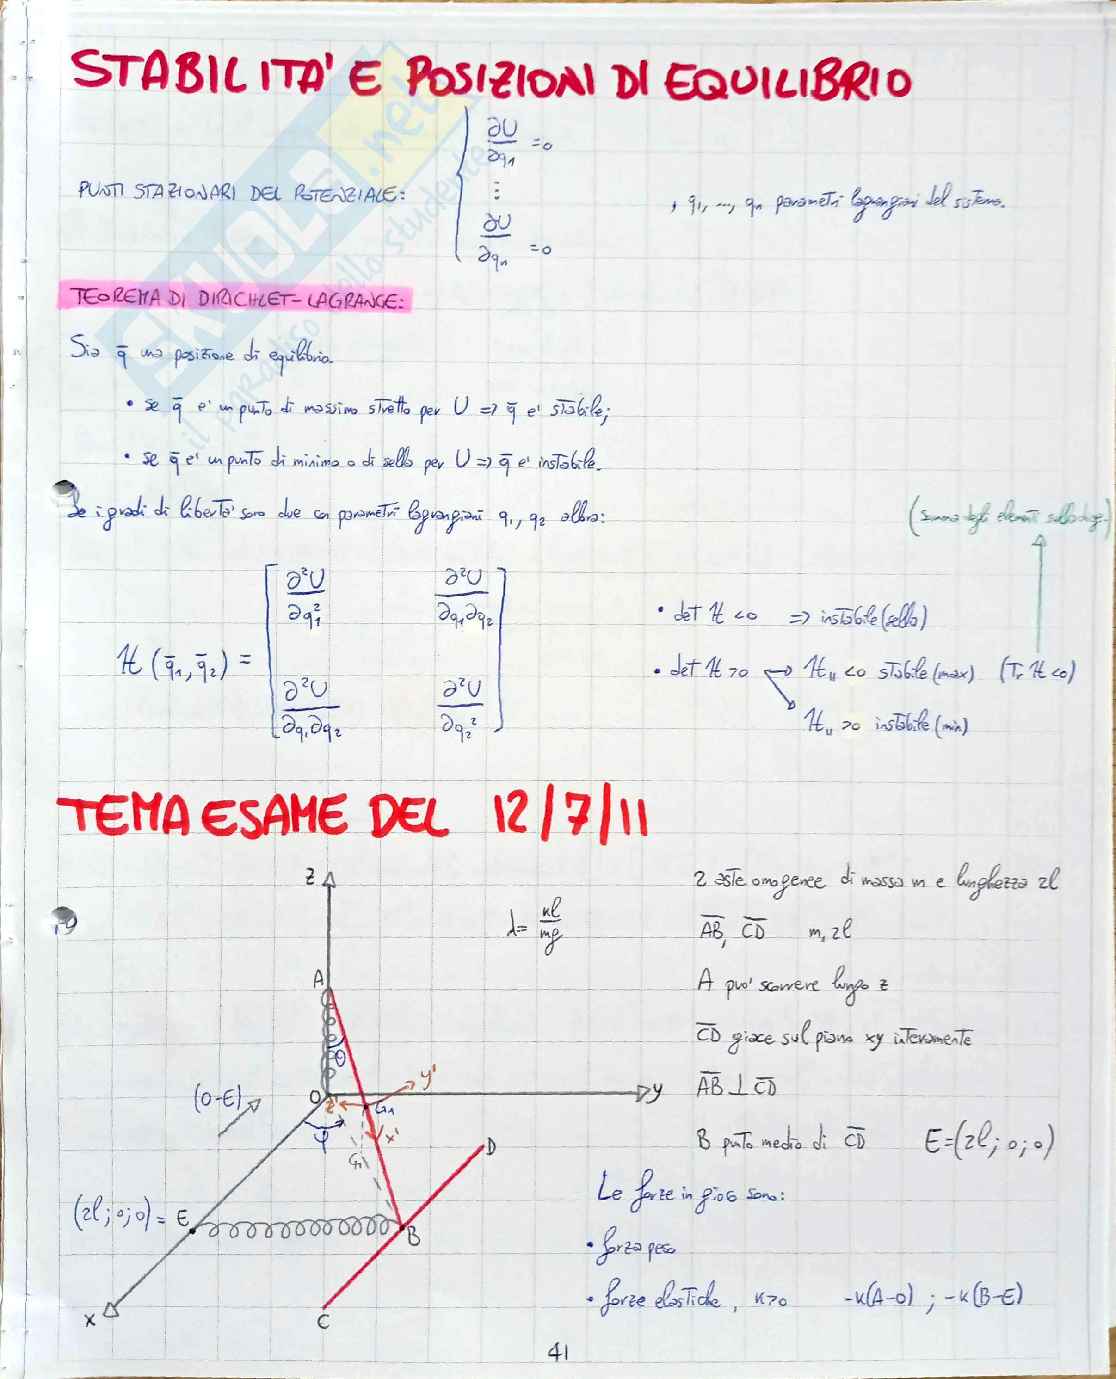 STABILITA' E POSIZIONI DI EQUILIBRIO
PUNTI STAZIONARI DEL POTENZIALE: { ∂U/∂q₁ = 0
⋮
∂U/∂qₙ = 0
, q₁, ..., qₙ parametri lagrangiani del sistema.
TEOREMA DI DIRICHLET-LAGRANGE:
Sia q̄ una posizione di equilibrio.
• se q̄ e' un punto di massimo stretto per U => q̄ e' stabile;
• se q̄ e' un punto di minimo o di sella per U => q̄ e' instabile.
Se i gradi di liberta' sono due con parametri lagrangiani q₁, q₂ allora:
(somma degli elementi sulla diag.)
H (q̄₁, q̄₂) = [ ∂²U/∂q₁² ∂²U/∂q₁∂q₂
∂²U/∂q₁∂q₂ ∂²U/∂q₂² ]
• det H <0 => instabile (sella)
• det H >0 → H₁₁ <0 stabile (max) (Tr H <0)
H₁₁ >0 instabile (min)
TEMA ESAME DEL 12/7/11
z
λ = kl/mg
2 aste omogenee di massa m e lunghezza 2l
AB, CD m, 2l
A puo' scorrere lungo z
CD giace sul piano xy interamente
AB ⊥ CD
B punto medio di CD E=(2l; 0; 0)
Le forze in gioco sono:
• forza peso
• forze elastiche, k>0 -k(A-O) ; -k(B-E)
A
θ
y'
(O-E)
O
z'
G₁
y
φ
x'
G₁'
D
(2l; 0; 0) = E
B
x
C
41
SKUOLA.net
il paradiso dello studente